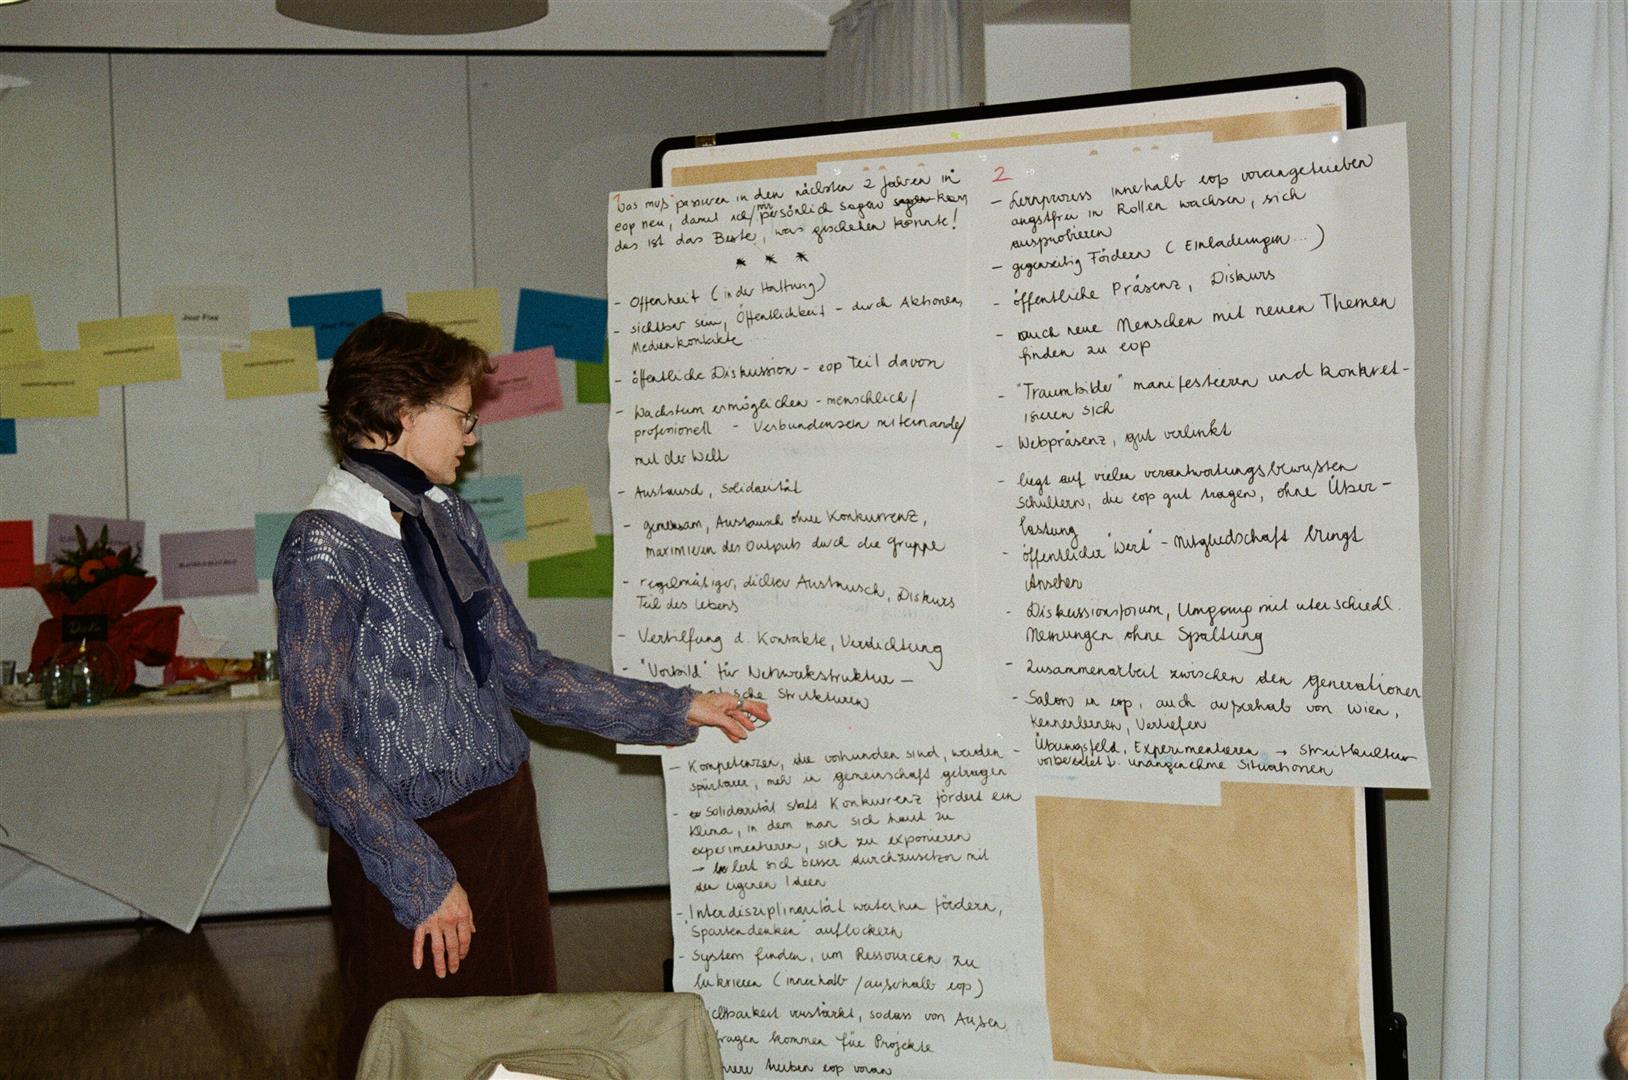 Jour Fixe
Jour Fixe
1
Was muß passieren in den nächsten 2 Jahren in
eop neu, damit ich/wir persönlich sagen sagen kann
das ist das Beste, was geschehen könnte!
- Offenheit (in der Haltung)
- sichtbar sein, Öffentlichkeit - durch Aktionen,
Medienkontakte ...
- öffentliche Diskussion - eop Teil davon
- Wachstum ermöglichen - menschlich/
professionell - Verbundensein miteinander/
mit der Welt
- Austausch, Solidarität
- gemeinsam, Austausch ohne Konkurrenz,
maximieren des Outputs durch die Gruppe
- regelmäßiger, dichter Austausch, Diskurs
Teil des Lebens
- Vertiefung d. Kontakte, Verdichtung
- "Vorbild" für Netzwerkstruktur -
Strukturen
- Kompetenzen, die vorhanden sind, werden
spürbarer, mehr in gemeinschaft getragen
- Solidarität statt Konkurrenz fördert ein
Klima, in dem man sich traut zu
experimentieren, sich zu exponieren
→ sich besser durchzusetzen mit
den eigenen Ideen
- Interdisziplinarität weiterhin fördern,
"Spartendenken" auflockern
- System finden, um Ressourcen zu
lukrieren (innerhalb/außerhalb eop)
verstärkt, sodass von Außen
kommen für Projekte
treiben eop voran
2
- Lernprozess innerhalb eop vorangetrieben
angstfrei in Rollen wachsen, sich
ausprobieren
- gegenseitig Fördern (Einladungen...)
- öffentliche Präsenz, Diskurs
- auch neue Menschen mit neuen Themen
finden zu eop
- "Traumbilder" manifestieren und konkret-
isieren sich
- Webpräsenz, gut verlinkt
- liegt auf vielen verantwortungsbewußten
Schultern, die eop gut tragen, ohne Über-
lastung
- öffentlicher "Wert" - Mitgliedschaft bringt
Ansehen
- Diskussionsforum, Umgang mit unterschiedl.
Meinungen ohne Spaltung
- Zusammenarbeit zwischen den Generationen
- Salon in eop, auch außerhalb von Wien,
kennenlernen, Vertiefen
- Übungsfeld, Experimentieren → Streitkultur
vorbereitet f. unangenehme Situationen